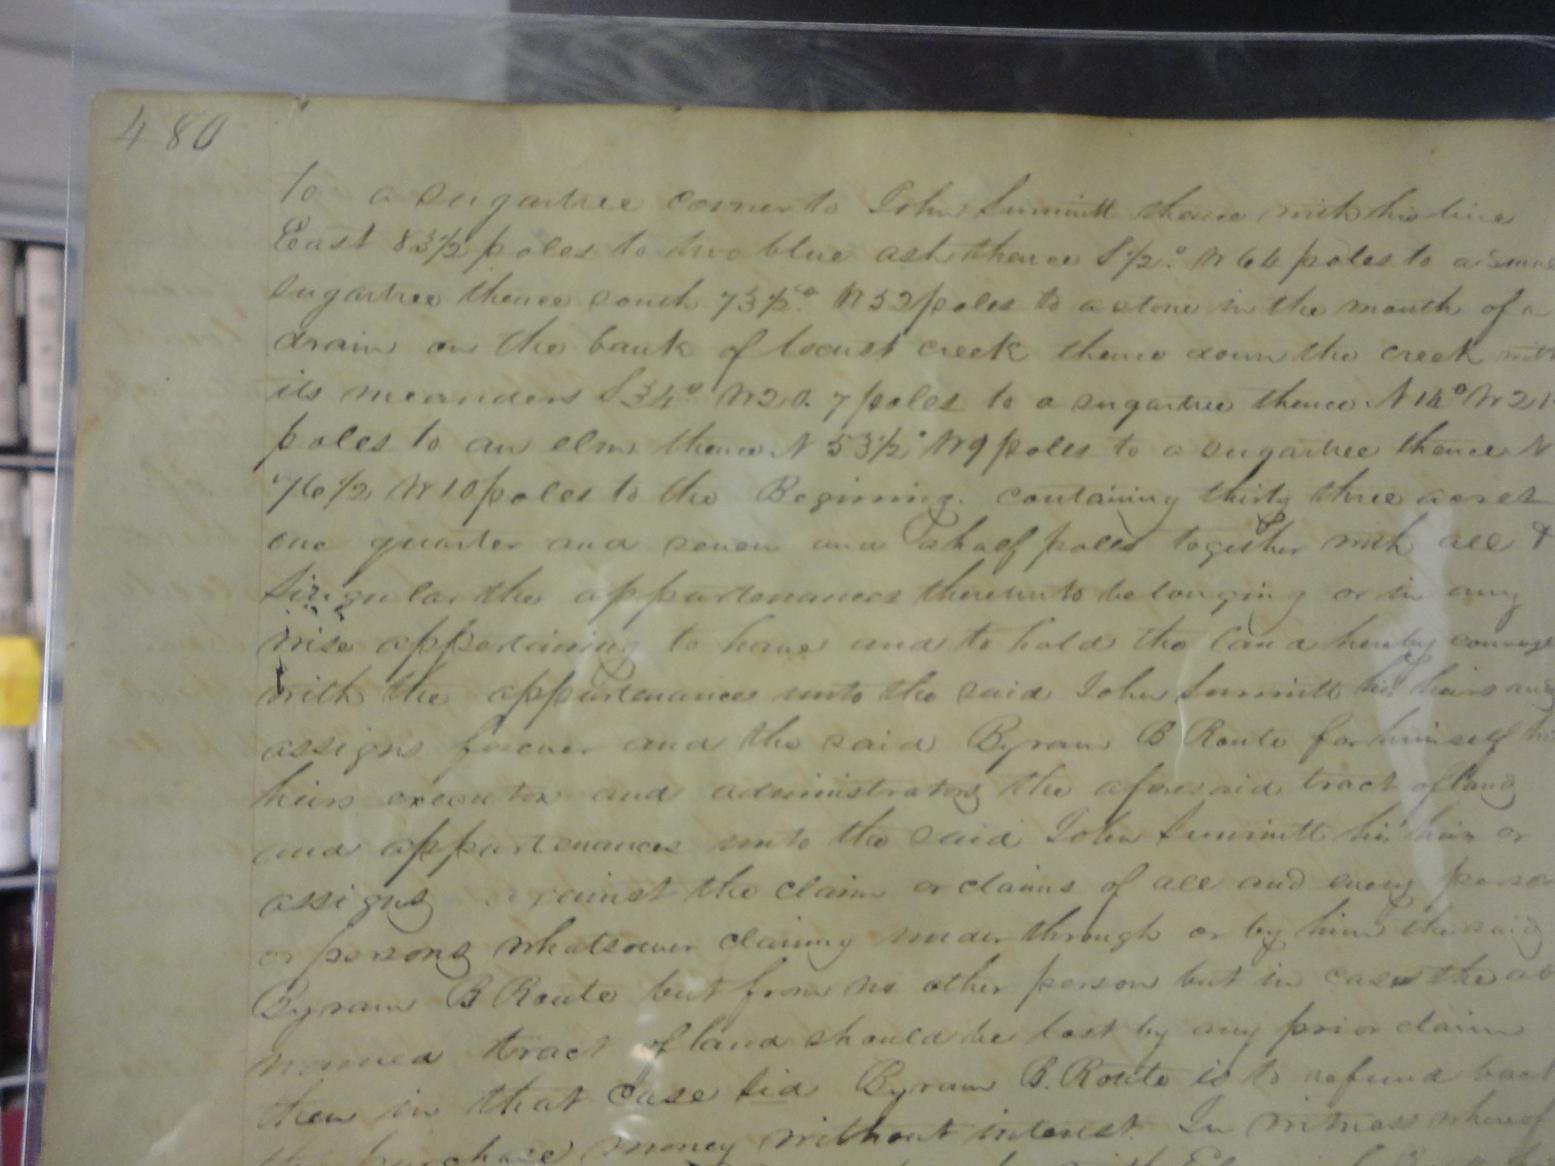 480
to a sugartree corner to John Summitt thence with his line
East 83½ poles to two blue ash thence S ½° W 64 poles to a
sugartree thence south 73½° W 52 poles to a stone in the mouth of a
drain on the bank of locust creek thence down the creek with
its meanders S 34° W 20.7 poles to a sugartree thence N 14° W 21
poles to an elm thence N 53½° W 9 poles to a sugartree thence N
76½ W 10 poles to the Beginning. containing thirty three acres
one quarter and seven and a half poles together with all &
singular the appurtenances thereunto belonging or in any
wise appertaining to have and to hold the land hereby
with the appurtenances unto the said John Summitt his heirs and
assigns forever and the said Byram B Route for himself his
heirs executors and administrators the aforesaid tract of land
and appurtenances unto the said John Summitt his heirs or
assigns against the claim or claims of all and every person
or persons whatsoever claiming under through or by him the said
Byram B Route but from no other person but in case the ab
named tract of land should be lost by any prior claim
then in that case sid Byram B. Route is to refund back
the purchase money without interest. In witness whereof